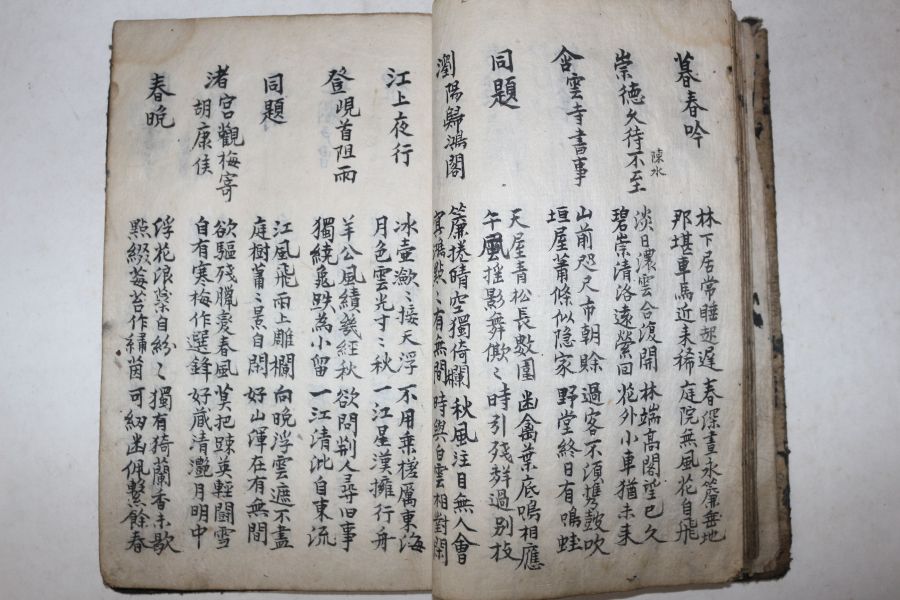 暮春吟
林下居常睡起遲
那堪車馬近来稀
春深晝永簾垂地
庭院無風花自飛
崇德久待不至
陳水
淡日濃雲合復開
碧崇清洛遠縈回
林端高閣望已久
花外小車猶未来
含雲寺書事
山前咫尺市朝賖
垣屋蕭條似隐家
過客不須携鼓吹
野堂終日有鳴蛙
同題
天屋青松長數圍
午風揺影舞僛〻
幽禽葉底鳴相應
時引残聲過別枝
瀏陽歸鴻閣
簾捲晴空獨倚欄
冥鴻點〻有無間
秋風注目無人會
時與白雲相對閑
江上夜行
冰壺瀲〻接天浮
月色雲光寸〻秋
不用乗槎厲東海
一江星漢擁行舟
登峴首阻雨
羊公風績幾經秋
獨繞龜趺為小留
欲問荆人尋旧事
一江清泚自東流
同題
江風飛雨上雕欄
庭樹蕭〻景自閑
向晚浮雲遮不盡
好山渾在有無間
渚宮觀梅寄
胡康侯
欲驅残臘変春風
自有寒梅作選鋒
莫把踈英輕鬪雪
好藏清艶月明中
春晩
浮花浪蘂自紛〻
點綴莓苔作繡茵
獨有猗蘭香未歇
可紉幽佩繫餘春